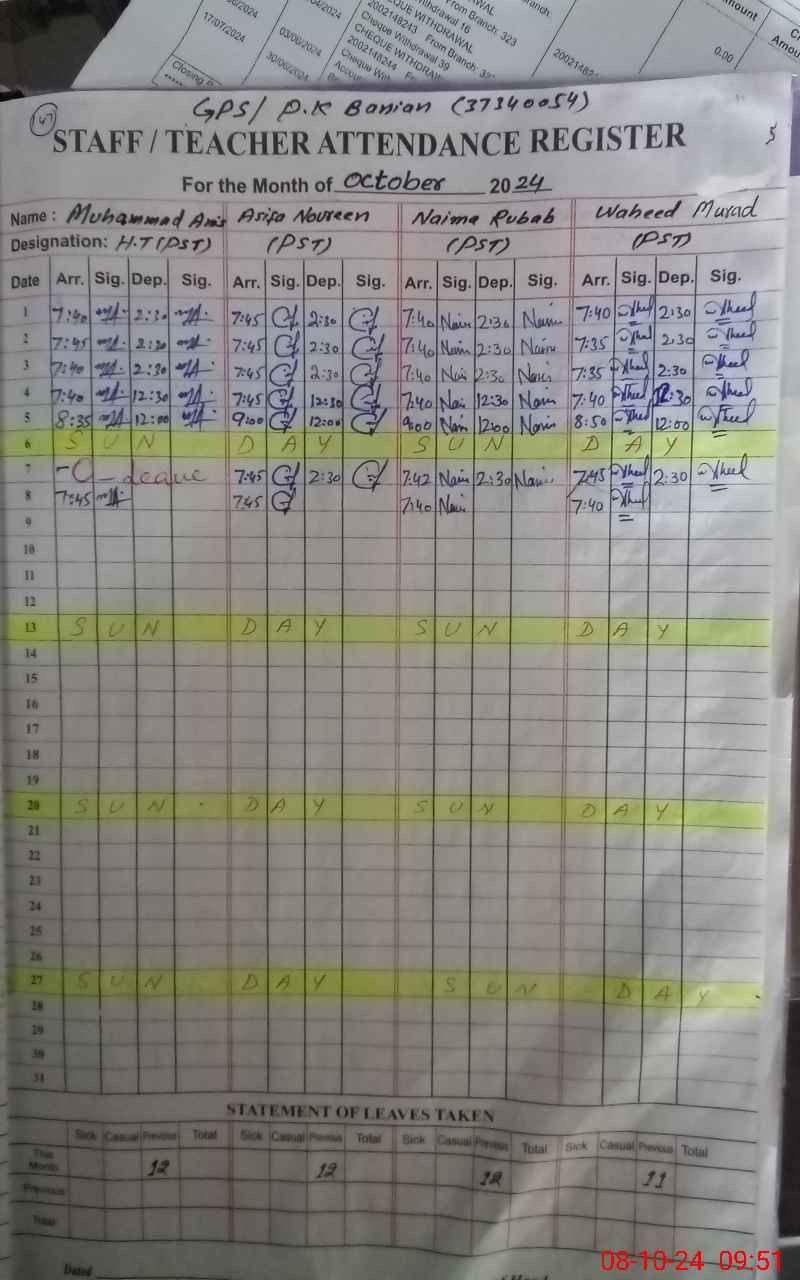 17/07/2024
03/06/2024
30/06/2024
Cheque Withdrawal 16
2002148243 From Branch. 323
Cheque Withdrawal 39
CHEQUE WITHDRAWAL
2002148244
Closing
0.00
147
GPS/ D.K Banian (37340054)
STAFF / TEACHER ATTENDANCE REGISTER
For the Month of October 2024
Name : Muhammad Anis Asifa Noureen Naima Rubab Waheed Murad
Designation: H.T (PST) (PST) (PST) (PST)
Date Arr. Sig. Dep. Sig. Arr. Sig. Dep. Sig. Arr. Sig. Dep. Sig. Arr. Sig. Dep. Sig.
1 7:40 2:30 7:45 2:30 7:40 Naim 2:30 Naim 7:40 2:30
2 7:45 2:30 7:45 2:30 7:40 Naim 2:30 Naim 7:35 2:30
3 7:40 2:30 7:45 2:30 7:40 Nai 2:30 Naim 7:35 2:30
4 7:40 12:30 7:45 12:30 7:40 Nai 12:30 Naim 7:40 12:30
5 8:35 12:00 9:00 12:00 9:00 Naim 12:00 Naim 8:50 12:00
6 S U N D A Y S U N D A Y
7 C-Leave 7:45 2:30 7:42 Naim 2:30 Naim 7:45 2:30
8 7:45 7:45 7:40 Nai 7:40
9
10
11
12
13 S U N D A Y S U N D A Y
14
15
16
17
18
19
20 S U N D A Y S U N D A Y
21
22
23
24
25
26
27 S U N D A Y S U N D A Y
28
29
30
31
STATEMENT OF LEAVES TAKEN
Sick Casual Previous Total Sick Casual Previous Total Sick Casual Previous Total Sick Casual Previous Total
This Month 12 12 12 11
Previous
Total
Dated
08-10-24 09:51